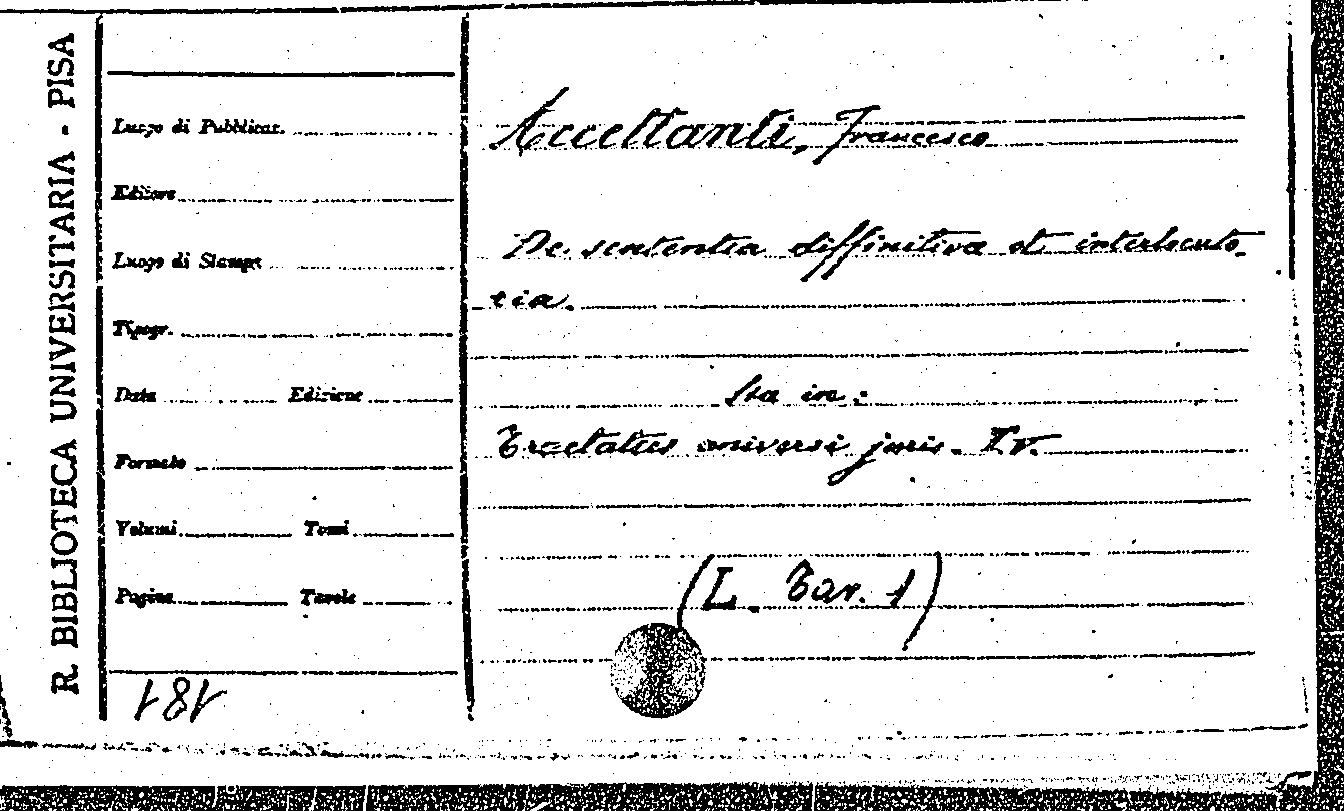 R. BIBLIOTECA UNIVERSITARIA - PISA
Luogo di Pubblicaz.
Editore
Luogo di Stampa
Tipogr.
Data Edizione
Formato
Volumi Tomi
Pagine Tavole
181
Accettanti, Francesco
De sententia diffinitiva et interlocuto-
ria.
Sta in:
Tractatus universi juris. IV.
(L. Tav. 1)